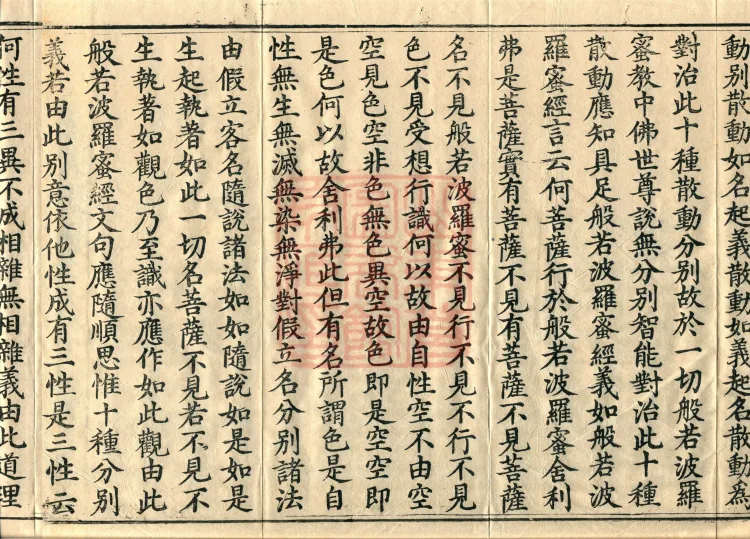 動別散動如名起義散動如義起名散動爲
對治此十種散動分別故於一切般若波羅
蜜教中佛世尊說無分別智能對治此十種
散動應知具足般若波羅蜜經義如般若波
羅蜜經言云何菩薩行於般若波羅蜜舍利
弗是菩薩實有菩薩不見有菩薩不見菩薩
名不見般若波羅蜜不見行不見不行不見
色不見受想行識何以故由自性空不由空
空見色空非色無色異空故色即是空空即
是色何以故舍利弗此但有名所謂色是自
性無生無滅無染無淨對假立名分別諸法
由假立客名隨說諸法如如隨說如是如是
生起執著如此一切名菩薩不見若不見不
生執著如觀色乃至識亦應作如此觀由此
般若波羅蜜經文句應隨順思惟十種分別
義若由此別意依他性成有三性是三性云
何性有三異不成相雜無相雜義由此道理